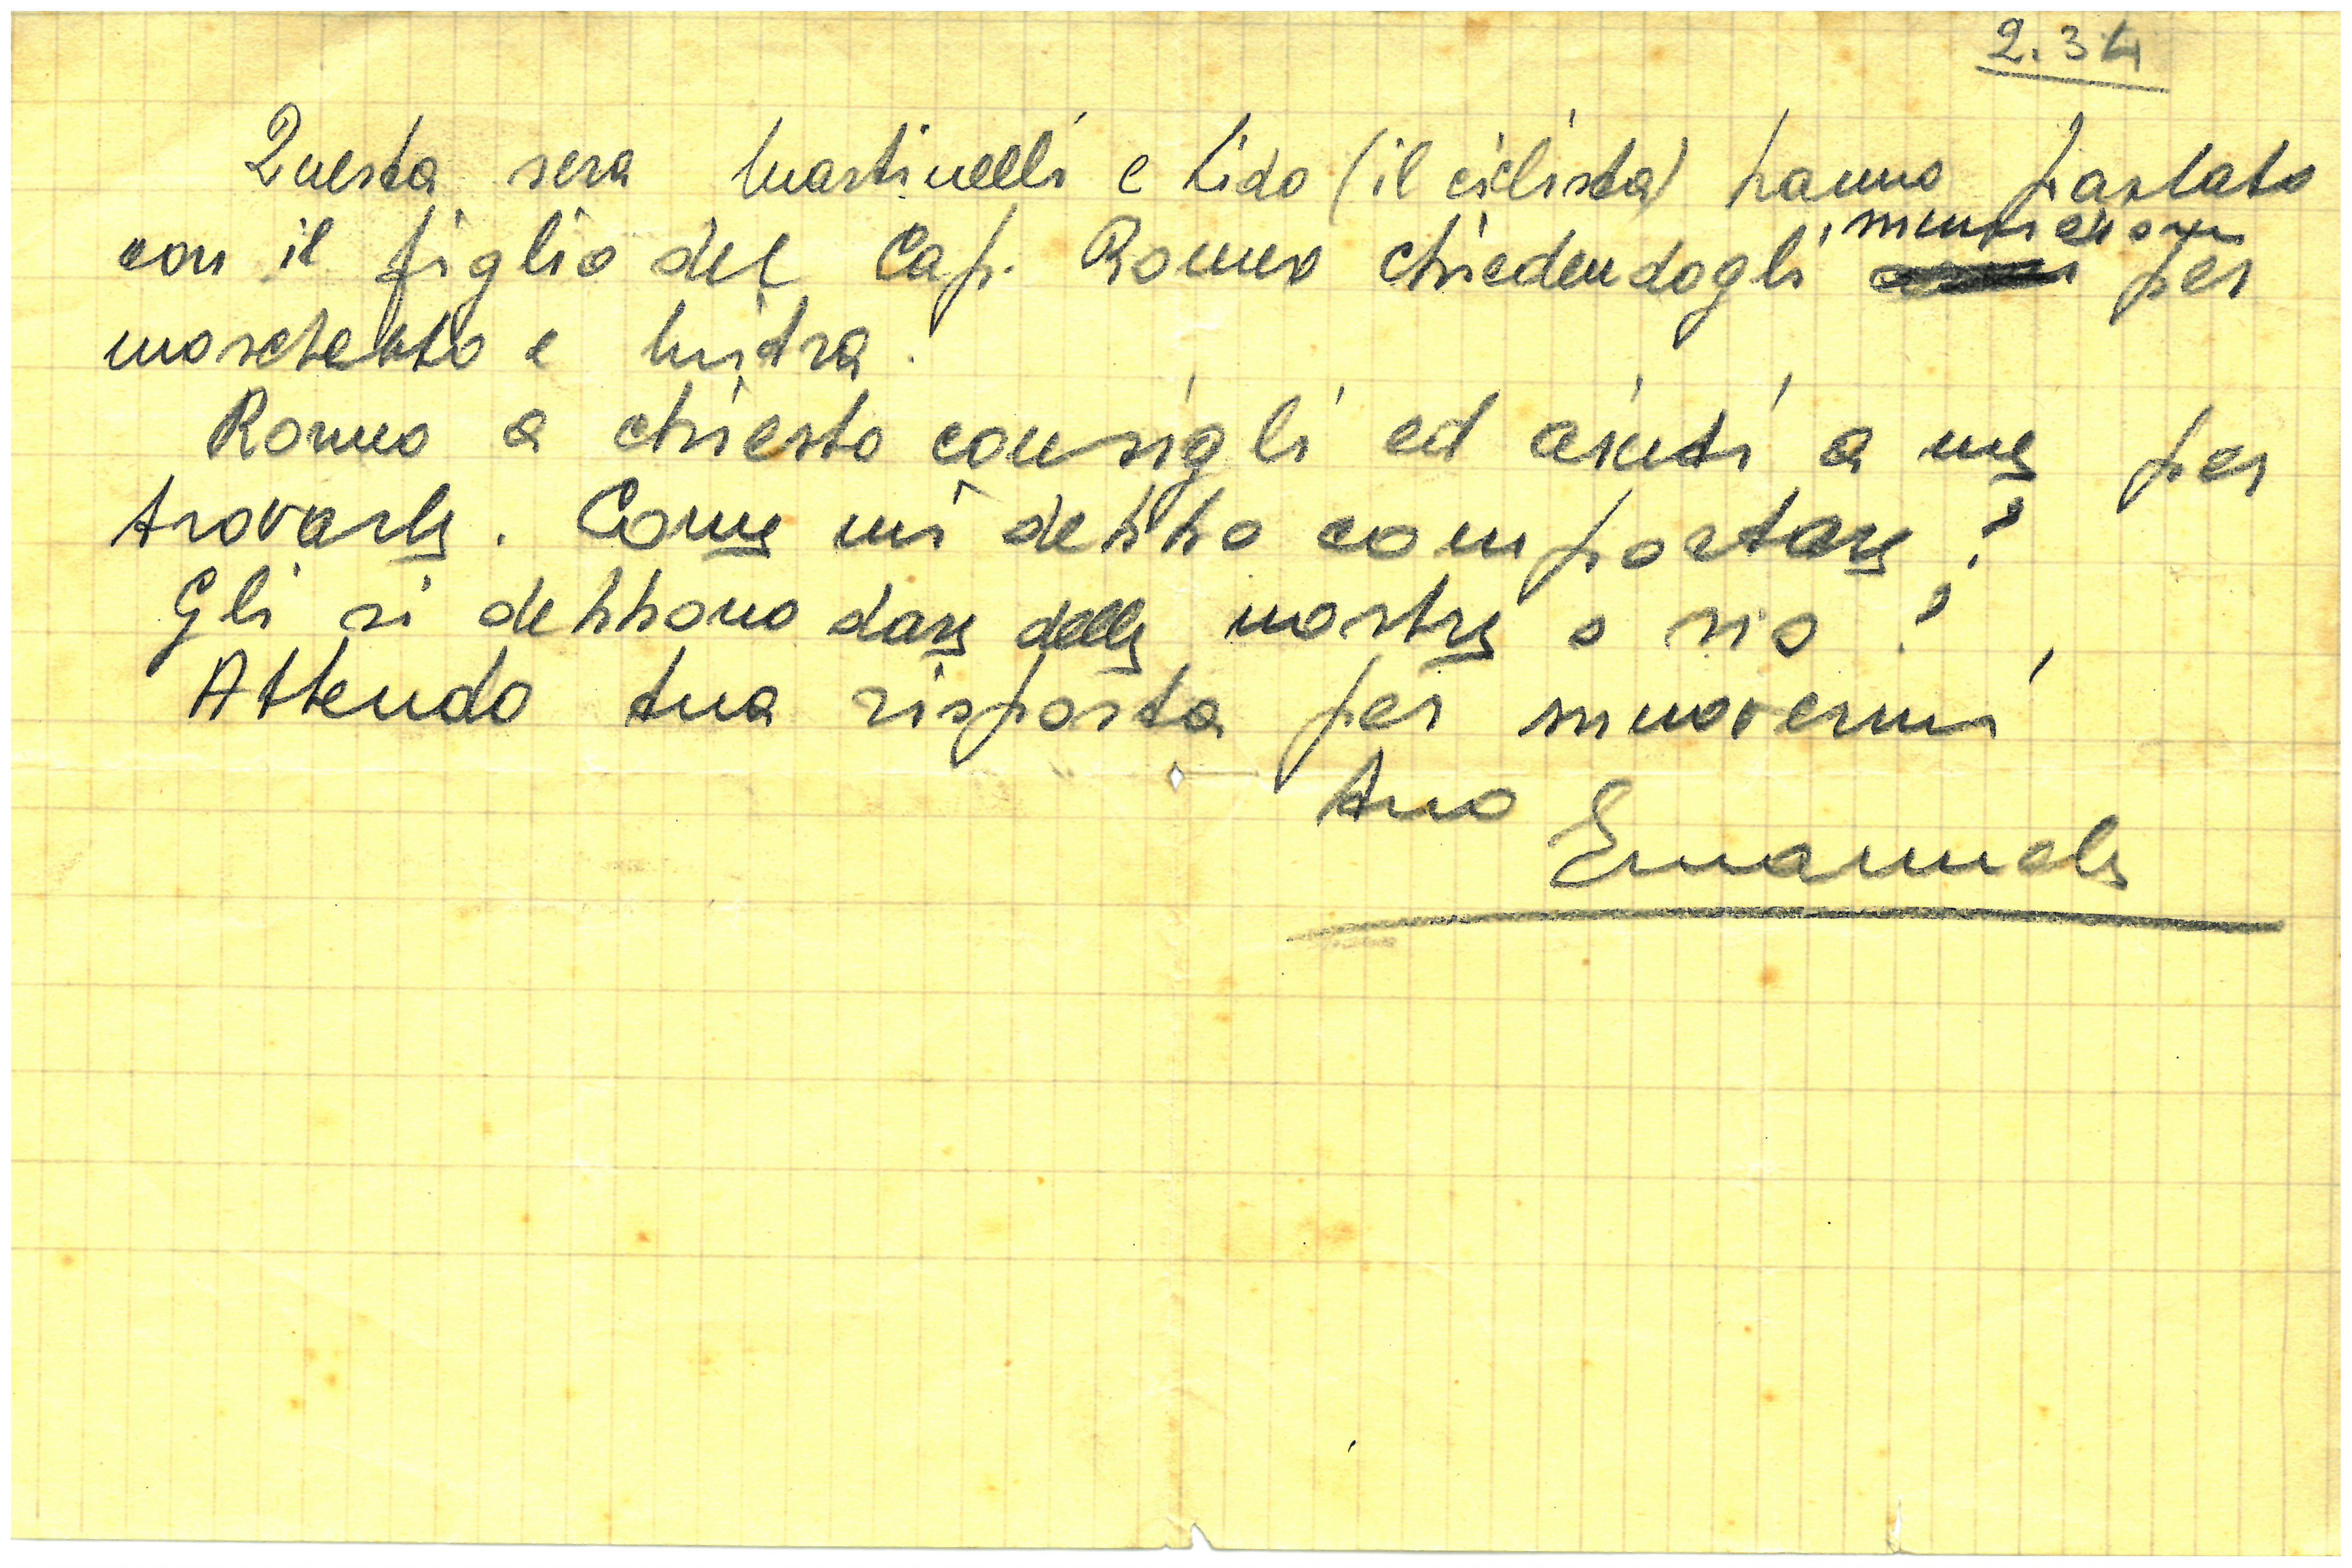 2.34
Questa sera Martinelli e Lido (il ciclista) hanno parlato
con il figlio del Cap. Romeo chiedendogli munizioni per
moschetto e mitra.
Romeo a chiesto consigli ed aiuti a me per
trovarle. Come mi debbo comportare?
Gli si debbono dare delle nostre o no?
Attendo tua risposta per muovermi
tuo
Emanuele